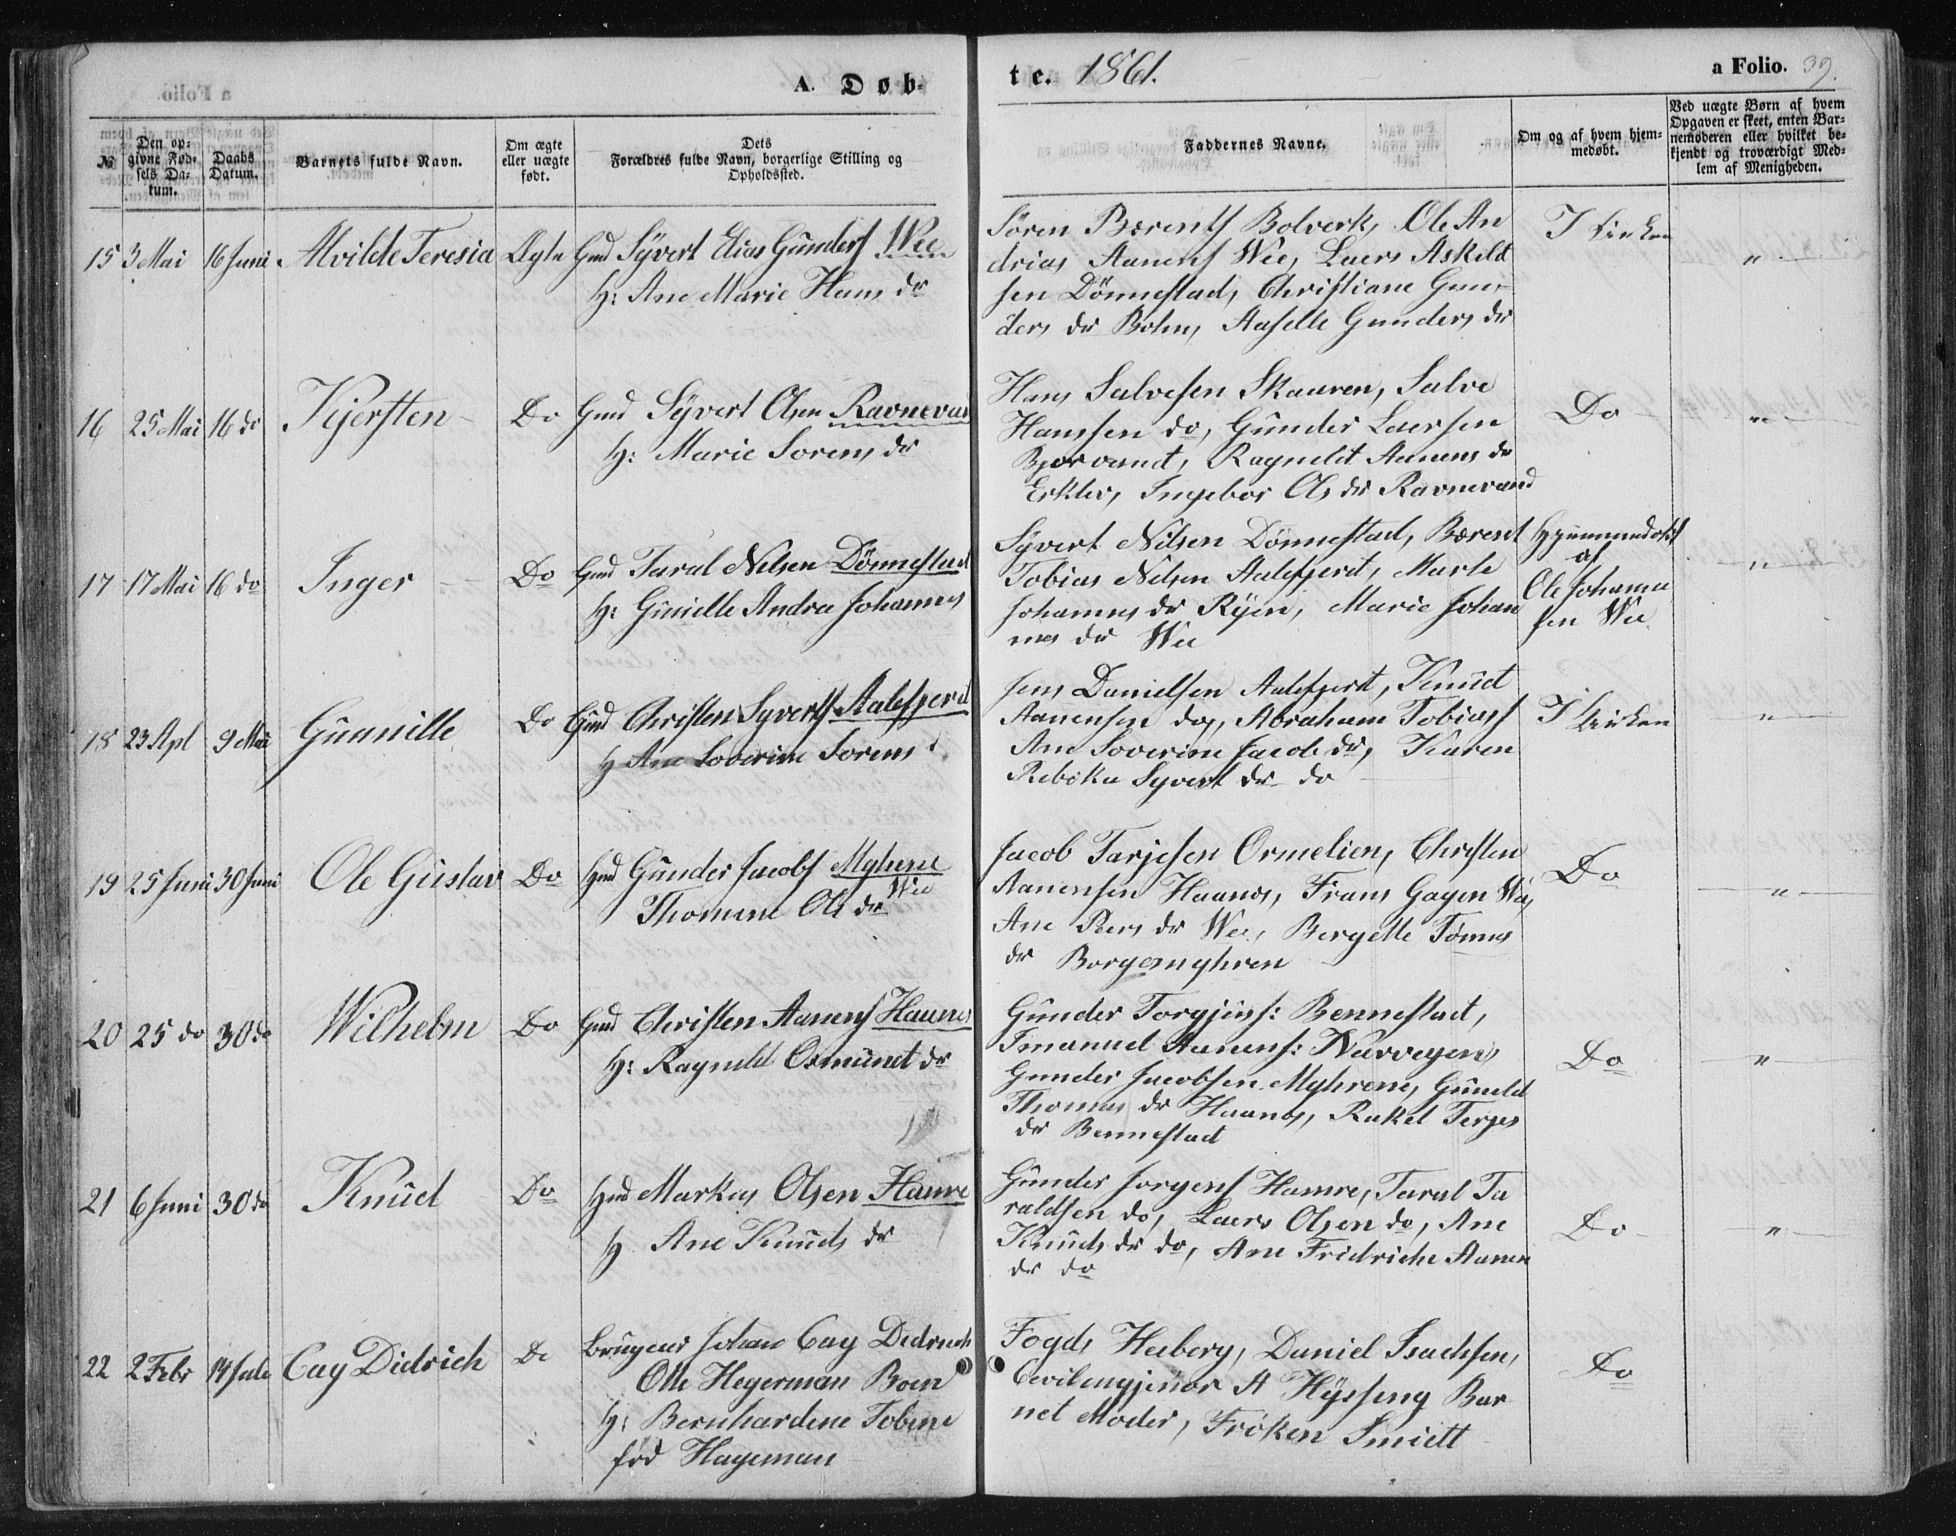 A. Døb-
te. 1861.
a Folio. 39.
№
Den opgivne Fødsels Datum.
Daabs Datum.
Barnets fulde Navn.
Om ægte eller uægte født.
Dets Forældres fulde Navn, borgerlige Stilling og Opholdssted.
Faddernes Navne.
Om og af hvem hjemmedøbt.
Ved uægte Børn af hvem Opgaven er skeet, enten Barnemoderen eller hvilket bekjendt og troværdigt Medlem af Menigheden.
15 3 Mai 16 Juni Alvilde Teresia Ægte Gmd Syvert Elias Gunders Wee
H: Ane Marie Hans dr
Søren Bærents Bolverk, Ole An
drias Aanens Wee, Laers Askild
sen Dönnestad, Christiane Gun
ders dr Bohn, Aaselle Gunders dr
I Kirken
"
16 25 Mai 16 do Kjersten Do Gmd Syvert Olsen Ravnevan
H: Marie Sorens dr
Hans Salvesen Skaaren, Salve
Hanssen do, Gunder Laersen
Bjorvand, Ragnild Aanens dr
Erklev, Ingebor Ols dr Ravnevand
Do
"
17 17 Mai 16 do Inger Do Gmd Taral Nilsen Dönnestad
H: Gunille Andrea Johannes
Syvert Nilsen Dönnestad, Bærent
Tobias Nilsen Aalefjerd, Marte
Johannes dr Ryen, Marie Johan
nes dr Wee
Hjemmedøbt
af
Ole Johanne
sen Wee
"
18 23 Apl 9 Mai Gunnille Do Gmd Christen Syverts Aalefjerd
H Ane Soverine Sorens d
Jens Danielsen Aalefjerd, Knud
Aanensen do, Abraham Tobiass
Ane Soverine Jacob dr, Karen
Rebeka Syvert dr do
I Kirken
"
19 25 Juni 30 Juni Ole Gustav Do Hmd Gunder Jacobs Myhrene
Wee
Thomine Ols dr
Jacob Tarjesen Ormelien, Christen
Aanensen Haanes, Frans Gagen Wee,
Ane Peers dr Wee, Bergette Tönnes
dr Borgemyhren
Do
"
20 25 do 30 do Wilhelm Do Gmd Christen Aanens Haanes
H: Ragnild Osmund dr
Gunder Torgjus: Bennestad,
Imanuel Aanens: Narvegen,
Gunder Jacobsen Myhrene, Gunild
Thomas dr Haanes, Rakel Terjes
dr Bennestad
Do
"
21 6 Juni 30 do Knud Do Hmd Markus Olsen Hamre
H Ane Knuds dr
Gunder Jorgens Hamre, Taral Ta
raldsen do, Laers Olsen do, Ane
Knuds dr do, Ane Fridriche Aanen
dr do
Do
"
22 2 Febr 14 Jule Cay Didrich Do Brugeier Johan Cay Didrich
Otte Hegerman Boen
H: Bernhardene Tobine
fød Hageman
Fogd Heiberg, Daniel Isachsen,
Civilengjenør A Hyssing Bar
net Moder, Fröken Smidt
Do